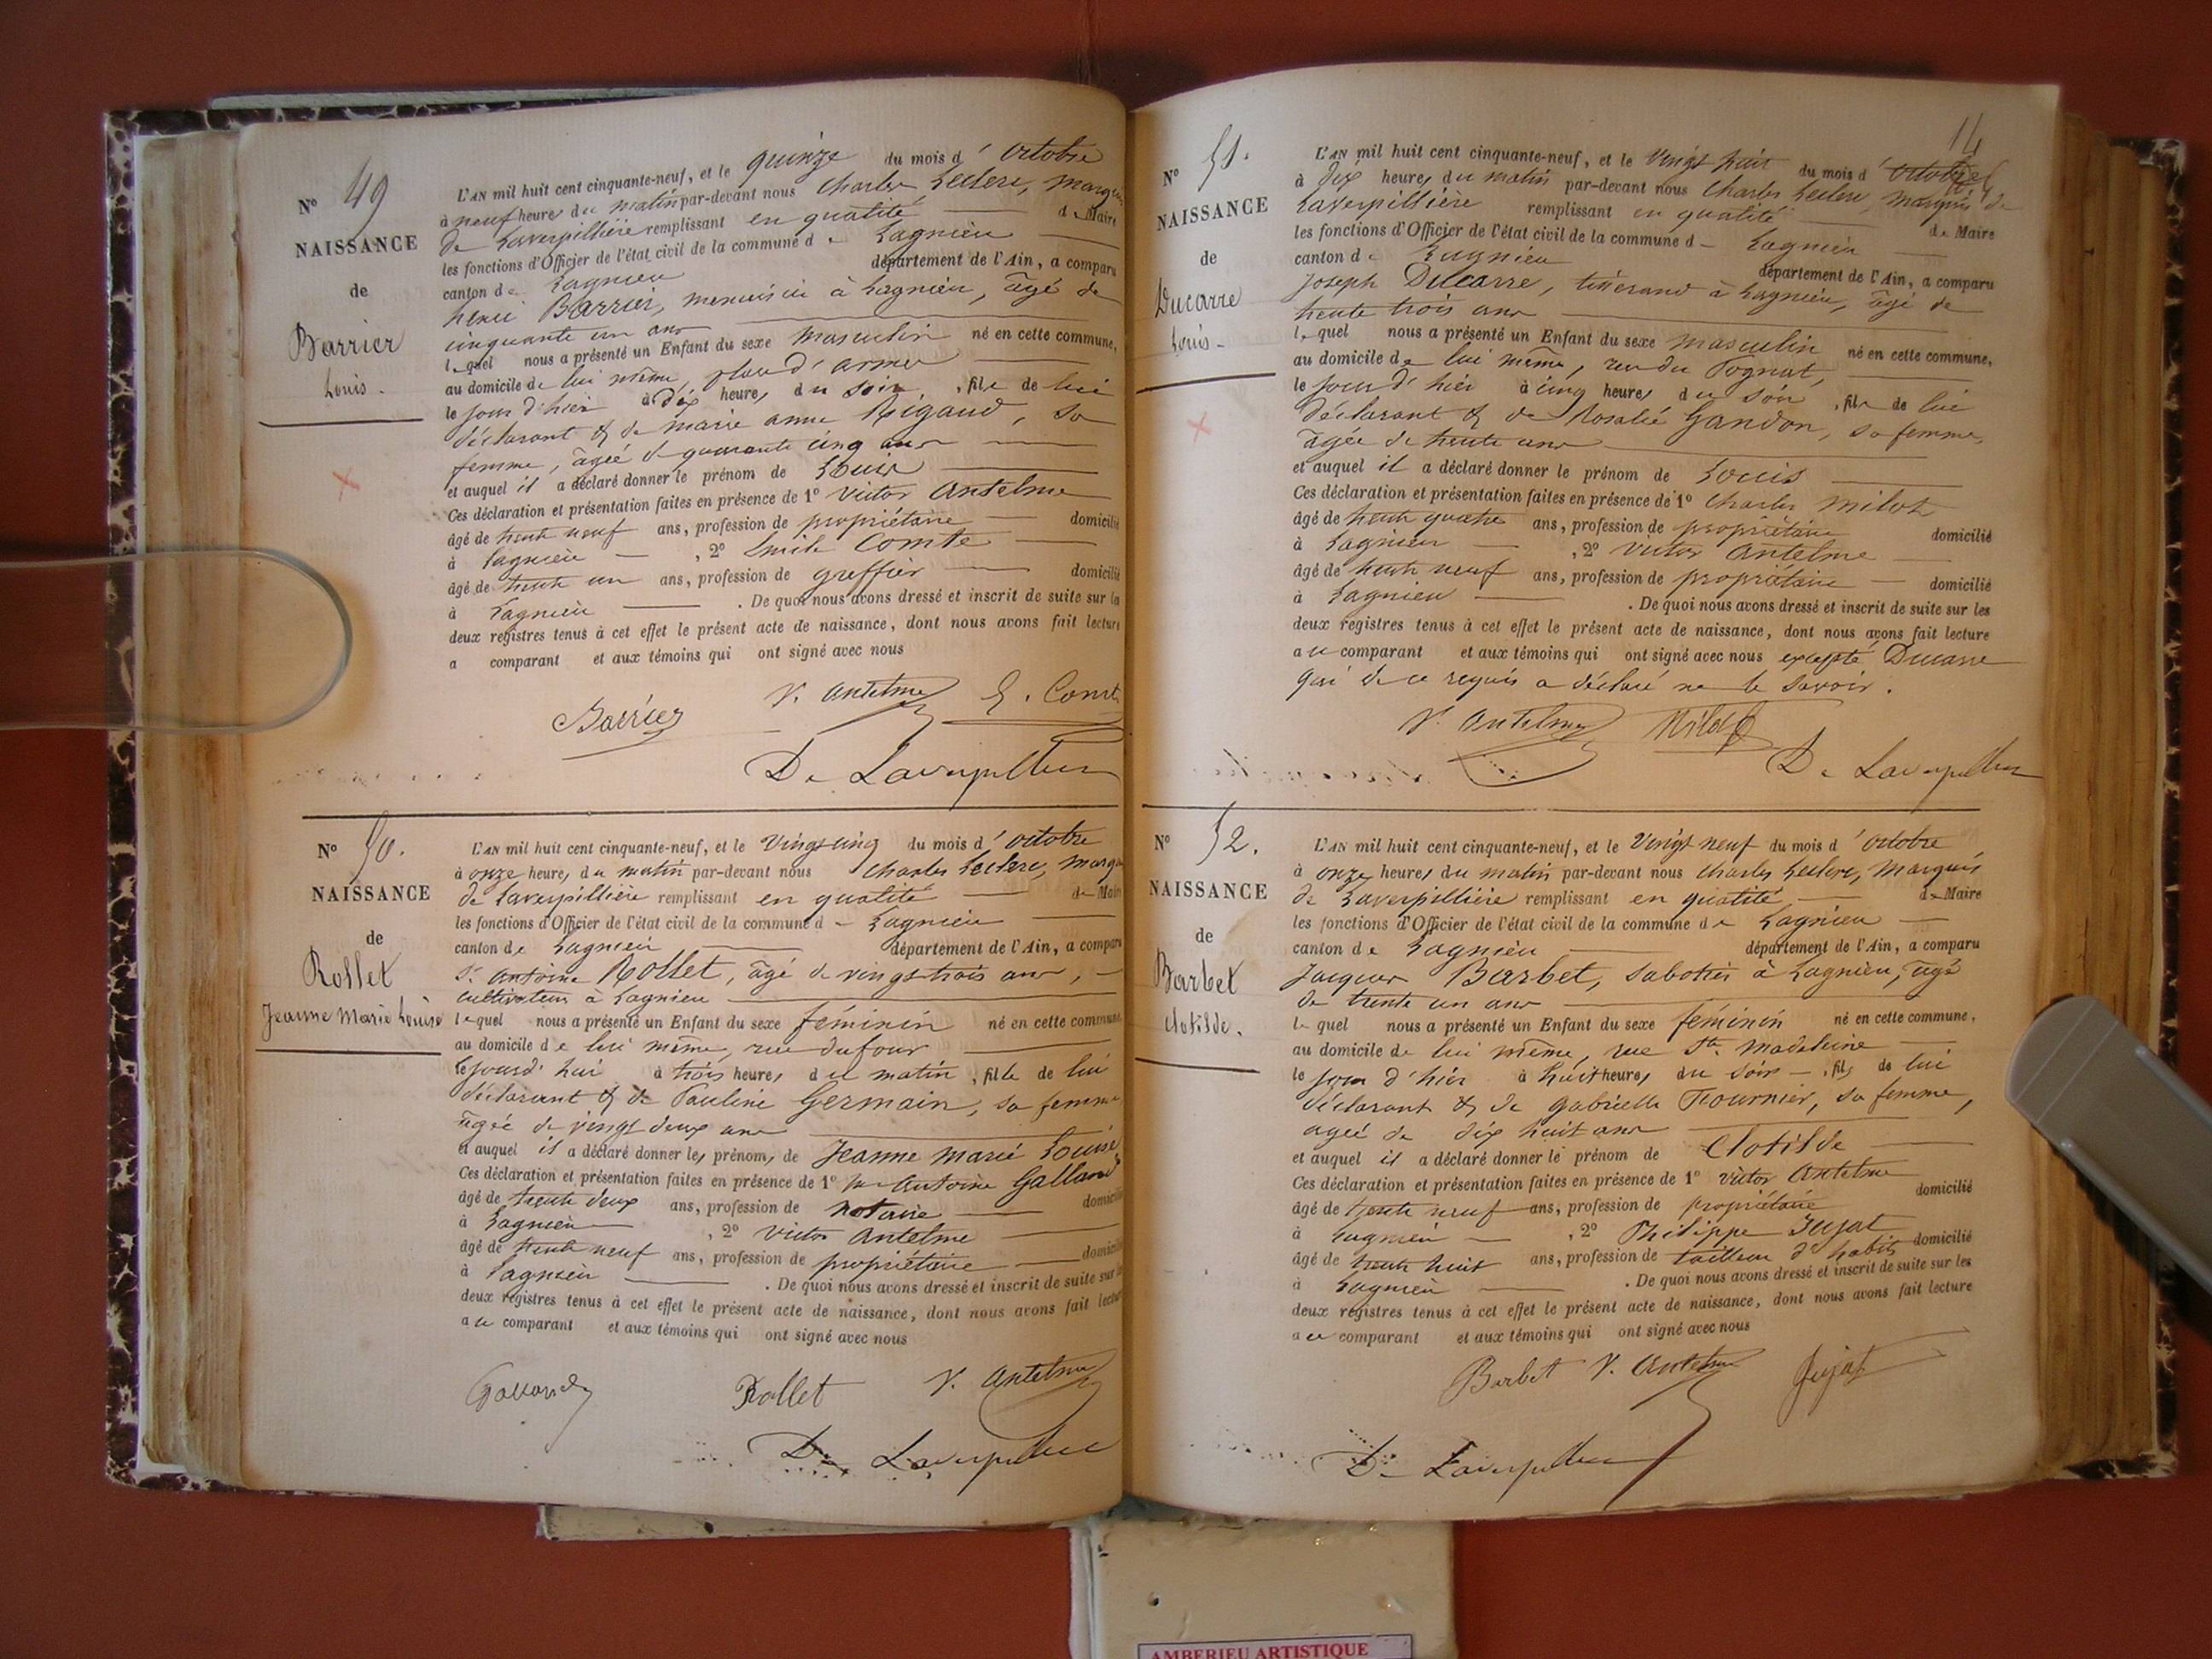 N° 49
NAISSANCE
de
Barrier
Louis.
L'AN mil huit cent cinquante-neuf, et le quinze du mois d'octobre
à neuf heures du matin par-devant nous Charles Leclerc, marquis
de Laverpillière remplissant en qualité de Maire
les fonctions d'Officier de l'état civil de la commune de Lagnieu
canton de Lagnieu département de l'Ain, a comparu
henri Barrier, menuisier à Lagnieu, âgé de
cinquante un ans
lequel nous a présenté un Enfant du sexe masculin né en cette commune,
au domicile de lui même, place d'armes
le jour d'hier à dix heures du soir, fils de lui
déclarant & de marie anne Rigaud, sa
femme, âgée de quarante cinq ans
et auquel il a déclaré donner le prénom de Louis
Ces déclaration et présentation faites en présence de 1° Victor Antelme
âgé de trente neuf ans, profession de propriétaire domicilié
à Lagnieu, 2° Emile Comte
âgé de trente un ans, profession de greffier domicilié
à Lagnieu. De quoi nous avons dressé et inscrit de suite sur les
deux registres tenus à cet effet le présent acte de naissance, dont nous avons fait lecture
a comparant et aux témoins qui ont signé avec nous
Barrier V. Antelme E. Comte
De Laverpilliere
N° 50.
NAISSANCE
de
Rollet
Jeanne Marie Louise
L'AN mil huit cent cinquante-neuf, et le vingt cinq du mois d'octobre
à onze heures du matin par-devant nous Charles Leclerc, marquis
de Laverpillière remplissant en qualité de Maire
les fonctions d'Officier de l'état civil de la commune de Lagnieu
canton de Lagnieu département de l'Ain, a comparu
Sr Antoine Rollet, âgé de vingt-trois ans,
cultivateur à Lagnieu
lequel nous a présenté un Enfant du sexe féminin né en cette commune
au domicile de lui même, rue du four
le jourd'hui à trois heures du matin, fille de lui
déclarant & de Pauline Germain, sa femme
âgée de vingt deux ans
et auquel il a déclaré donner les prénoms de Jeanne Marie Louise
Ces déclaration et présentation faites en présence de 1° Antoine Galland
âgé de trente deux ans, profession de notaire domicilié
à Lagnieu, 2° Victor Antelme
âgé de trente neuf ans, profession de propriétaire domicilié
à Lagnieu. De quoi nous avons dressé et inscrit de suite sur les
deux registres tenus à cet effet le présent acte de naissance, dont nous avons fait lecture
au comparant et aux témoins qui ont signé avec nous
Galland Rollet V. Antelme
De Laverpilliere
14
N° 51.
NAISSANCE
de
Ducarre
Louis
L'AN mil huit cent cinquante-neuf, et le vingt huit du mois d'octobre
à dix heures du matin par-devant nous Charles Leclerc, Marquis de
Laverpillière remplissant en qualité de Maire
les fonctions d'Officier de l'état civil de la commune de Lagnieu
canton de Lagnieu département de l'Ain, a comparu
Joseph Ducarre, tisserand à Lagnieu, âgé de
trente trois ans
lequel nous a présenté un Enfant du sexe masculin né en cette commune,
au domicile de lui même, rue du Pognat,
le jour d'hier à cinq heures du soir, fils de lui
déclarant & de Rosalie Gandon, sa femme,
âgée de trente ans
et auquel il a déclaré donner le prénom de Louis
Ces déclaration et présentation faites en présence de 1° Charles Milot
âgé de trente quatre ans, profession de propriétaire domicilié
à Lagnieu, 2° Victor Antelme
âgé de trente neuf ans, profession de propriétaire domicilié
à Lagnieu. De quoi nous avons dressé et inscrit de suite sur les
deux registres tenus à cet effet le présent acte de naissance, dont nous avons fait lecture
au comparant et aux témoins qui ont signé avec nous excepté Ducarre
qui de ce requis a déclaré ne le savoir.
V. Antelme Milot
De Laverpilliere
N° 52.
NAISSANCE
de
Barbet
Clotilde.
L'AN mil huit cent cinquante-neuf, et le vingt neuf du mois d'octobre
à onze heures du matin par-devant nous Charles Leclerc, Marquis
de Laverpillière remplissant en qualité de Maire
les fonctions d'Officier de l'état civil de la commune de Lagnieu
canton de Lagnieu département de l'Ain, a comparu
Jacques Barbet, sabotier à Lagnieu, âgé
de trente un ans
lequel nous a présenté un Enfant du sexe féminin né en cette commune,
au domicile de lui même, rue Ste Madeleine
le jour d'hier à huit heures du soir, fils de lui
déclarant & de Gabrielle Tournier, sa femme,
agée de dix huit ans
et auquel il a déclaré donner le prénom de Clotilde
Ces déclaration et présentation faites en présence de 1° Victor Antelme
âgé de trente neuf ans, profession de propriétaire domicilié
à Lagnieu, 2° Philippe Jujat
âgé de trente huit ans, profession de tailleur d'habits domicilié
à Lagnieu. De quoi nous avons dressé et inscrit de suite sur les
deux registres tenus à cet effet le présent acte de naissance, dont nous avons fait lecture
au comparant et aux témoins qui ont signé avec nous
Barbet V. Antelme Jujat
De Laverpilliere
AMBERIEU ARTISTIQUE